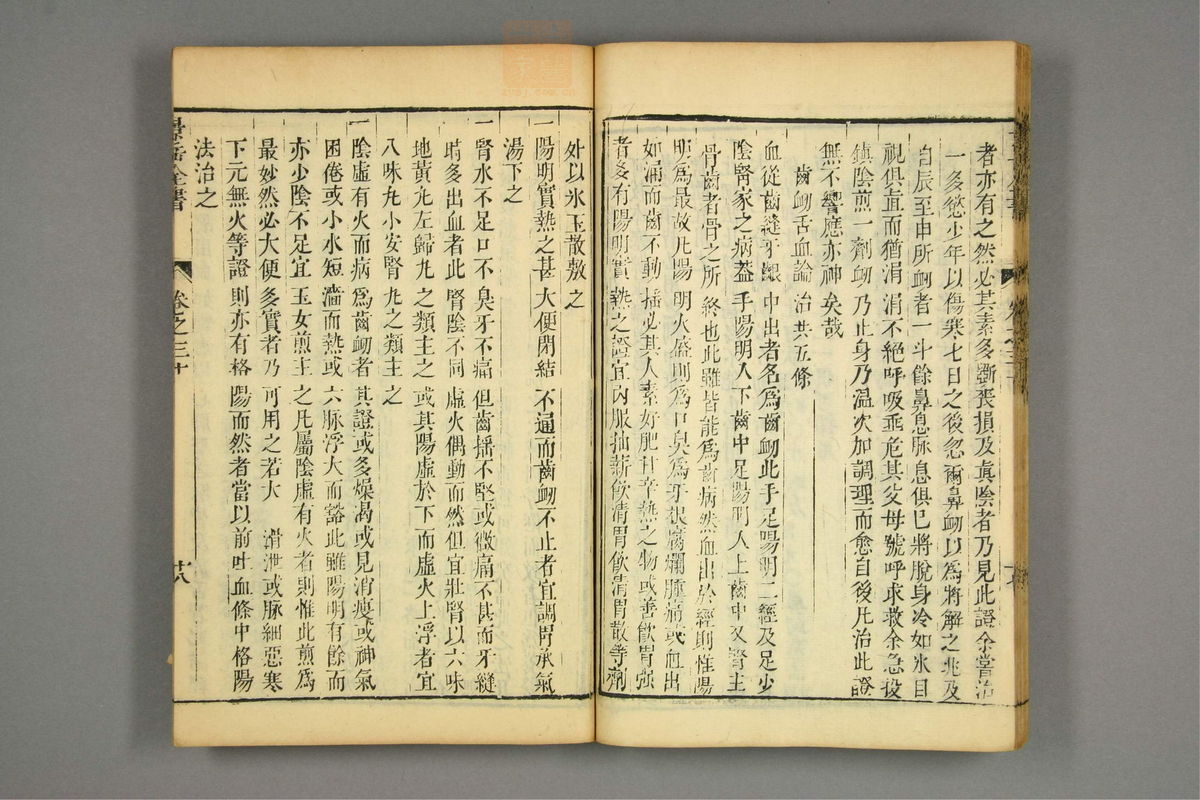 者亦有之然必其素多斵喪損及眞陰者乃見此證余嘗治
一多慾少年以傷寒七日之後忽爾鼻衂以爲將解之兆及
自辰至申所衂者一斗餘鼻息脉息俱已將脫身冷如氷目
視俱直而猶涓涓不絕呼吸垂危其父母號呼求救余急投
鎮陰煎一劑衂乃止身乃温次加調理而愈自後凡治此證
無不響應亦神矣哉
齒衂舌血論治共五條
血從齒縫牙齦中出者名爲齒衂此手足陽明二經及足少
陰腎家之病葢手陽明入下齒中足陽明入上齒中又腎主
骨齒者骨之所終也此雖皆能爲齒病然血出於經則惟陽
明爲最故凡陽明火盛則爲口臭爲牙根腐爛腫痛或血出
如涌而齒不動搖必其人素好肥甘辛熱之物或善飲胃强
者多有陽明實熱之證宜內服抽薪飲清胃飲清胃散等劑
外以氷玉散敷之
一陽明實熱之甚大便閉結不通而齒衂不止者宜調胃承氣
湯下之
一腎水不足口不臭牙不痛但齒搖不堅或微痛不甚而牙縫
時多出血者此腎陰不同虛火偶動而然但宜壯腎以六味
地黃丸左歸丸之類主之或其陽虛於下而虛火上浮者宜
八味丸小安腎丸之類主之
一陰虛有火而病爲齒衂者其證或多燥渴或見消瘦或神氣
困倦或小水短濇而熱或六脉浮大而豁此雖陽明有餘而
亦少陰不足宜玉女煎主之凡屬陰虛有火者則惟此煎爲
最妙然必大便多實者乃可用之若大滑泄或脉細惡寒
下元無火等證則亦有格陽而然者當以前吐血條中格陽
法治之
景岳全書
卷之三十
廿八